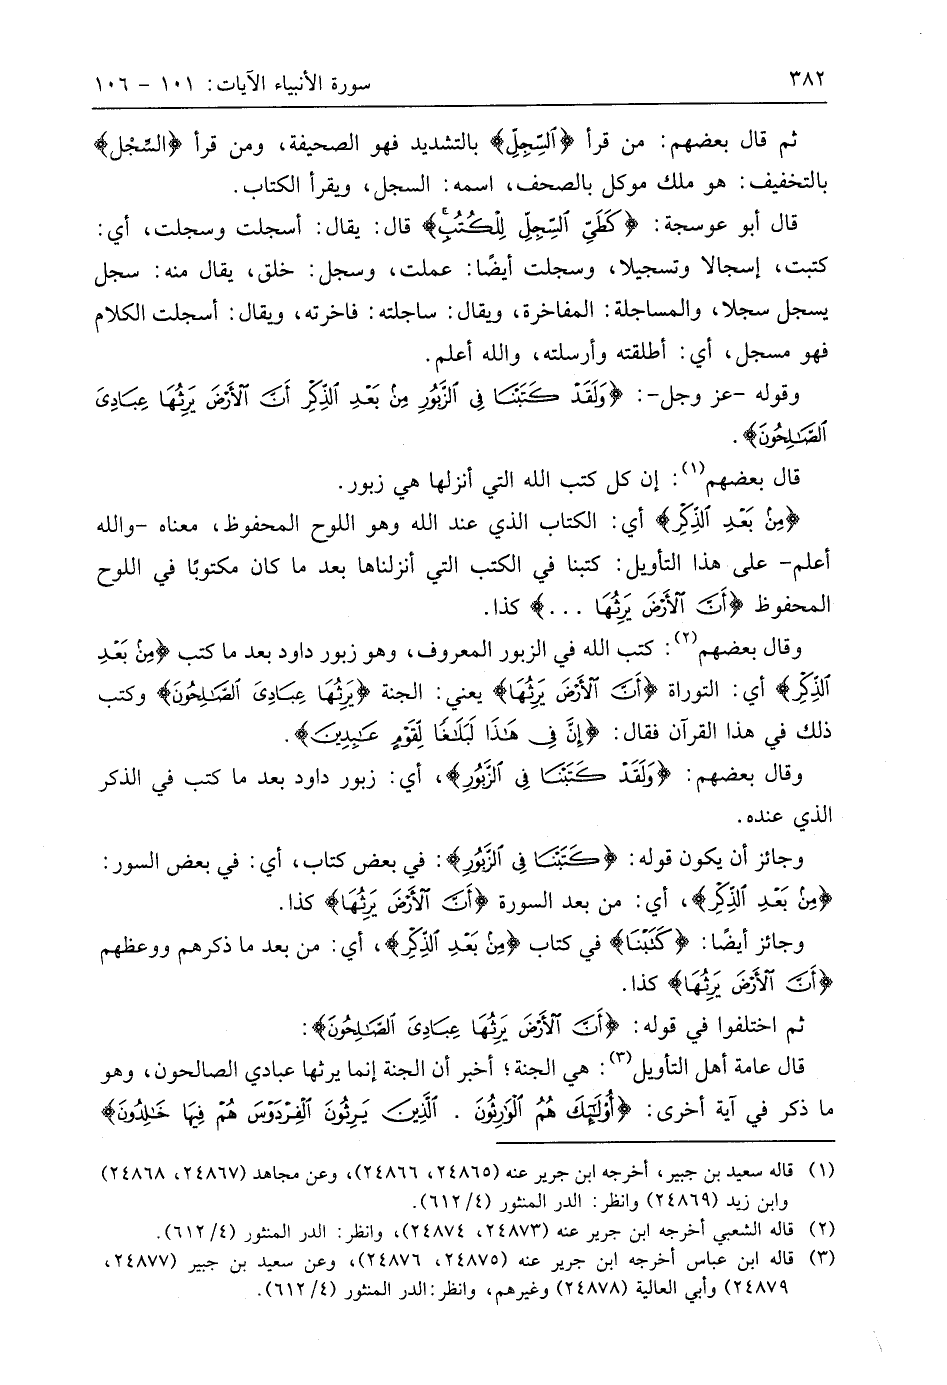 ٣٨٢ سورة الأنبياء الآيات: ١٠١ - ١٠٦
ثم قال بعضهم: من قرأ ﴿ٱلسِّجِلِّ﴾ بالتشديد فهو الصحيفة، ومن قرأ ﴿السَّجْل﴾
بالتخفيف: هو ملك موكل بالصحف، اسمه: السجل، ويقرأ الكتاب.
قال أبو عوسجة: ﴿كَطَيِّ ٱلسِّجِلِّ لِلْكُتُبِ﴾ قال: يقال: أسجلت وسجلت، أي:
كتبت، إسجالا وتسجيلا، وسجلت أيضًا: عملت، وسجل: خلق، يقال منه: سجل
يسجل سجلا، والمساجلة: المفاخرة، ويقال: ساجلته: فاخرته، ويقال: أسجلت الكلام
فهو مسجل، أي: أطلقته وأرسلته، والله أعلم.
وقوله -عز وجل-: ﴿وَلَقَدْ كَتَبْنَا فِى ٱلزَّبُورِ مِنۢ بَعْدِ ٱلذِّكْرِ أَنَّ ٱلْأَرْضَ يَرِثُهَا عِبَادِىَ
ٱلصَّٰلِحُونَ﴾.
قال بعضهم(١): إن كل كتب الله التي أنزلها هي زبور.
﴿مِنۢ بَعْدِ ٱلذِّكْرِ﴾ أي: الكتاب الذي عند الله وهو اللوح المحفوظ، معناه -والله
أعلم- على هذا التأويل: كتبنا في الكتب التي أنزلناها بعد ما كان مكتوبًا في اللوح
المحفوظ ﴿أَنَّ ٱلْأَرْضَ يَرِثُهَا ...﴾ كذا.
وقال بعضهم(٢): كتب الله في الزبور المعروف، وهو زبور داود بعد ما كتب ﴿مِنۢ بَعْدِ
ٱلذِّكْرِ﴾ أي: التوراة ﴿أَنَّ ٱلْأَرْضَ يَرِثُهَا﴾ يعني: الجنة ﴿يَرِثُهَا عِبَادِىَ ٱلصَّٰلِحُونَ﴾ وكتب
ذلك في هذا القرآن فقال: ﴿إِنَّ فِى هَٰذَا لَبَلَٰغًا لِّقَوْمٍ عَٰبِدِينَ﴾.
وقال بعضهم: ﴿وَلَقَدْ كَتَبْنَا فِى ٱلزَّبُورِ﴾، أي: زبور داود بعد ما كتب في الذكر
الذي عنده.
وجائز أن يكون قوله: ﴿كَتَبْنَا فِى ٱلزَّبُورِ﴾: في بعض كتاب، أي: في بعض السور:
﴿مِنۢ بَعْدِ ٱلذِّكْرِ﴾، أي: من بعد السورة ﴿أَنَّ ٱلْأَرْضَ يَرِثُهَا﴾ كذا.
وجائز أيضًا: ﴿كَتَبْنَا﴾ في كتاب ﴿مِنۢ بَعْدِ ٱلذِّكْرِ﴾، أي: من بعد ما ذكرهم ووعظهم
﴿أَنَّ ٱلْأَرْضَ يَرِثُهَا﴾ كذا.
ثم اختلفوا في قوله: ﴿أَنَّ ٱلْأَرْضَ يَرِثُهَا عِبَادِىَ ٱلصَّٰلِحُونَ﴾:
قال عامة أهل التأويل(٣): هي الجنة؛ أخبر أن الجنة إنما يرثها عبادي الصالحون، وهو
ما ذكر في آية أخرى: ﴿أُوْلَٰٓئِكَ هُمُ ٱلْوَٰرِثُونَ . ٱلَّذِينَ يَرِثُونَ ٱلْفِرْدَوْسَ هُمْ فِيهَا خَٰلِدُونَ﴾
(١) قاله سعيد بن جبير، أخرجه ابن جرير عنه (٢٤٨٦٥، ٢٤٨٦٦)، وعن مجاهد (٢٤٨٦٧، ٢٤٨٦٨)
وابن زيد (٢٤٨٦٩) وانظر: الدر المنثور (٤/ ٦١٢).
(٢) قاله الشعبي أخرجه ابن جرير عنه (٢٤٨٧٣، ٢٤٨٧٤)، وانظر: الدر المنثور (٤/ ٦١٢).
(٣) قاله ابن عباس أخرجه ابن جرير عنه (٢٤٨٧٥، ٢٤٨٧٦)، وعن سعيد بن جبير (٢٤٨٧٧،
٢٤٨٧٩) وأبي العالية (٢٤٨٧٨) وغيرهم، وانظر:الدر المنثور (٤/ ٦١٢).